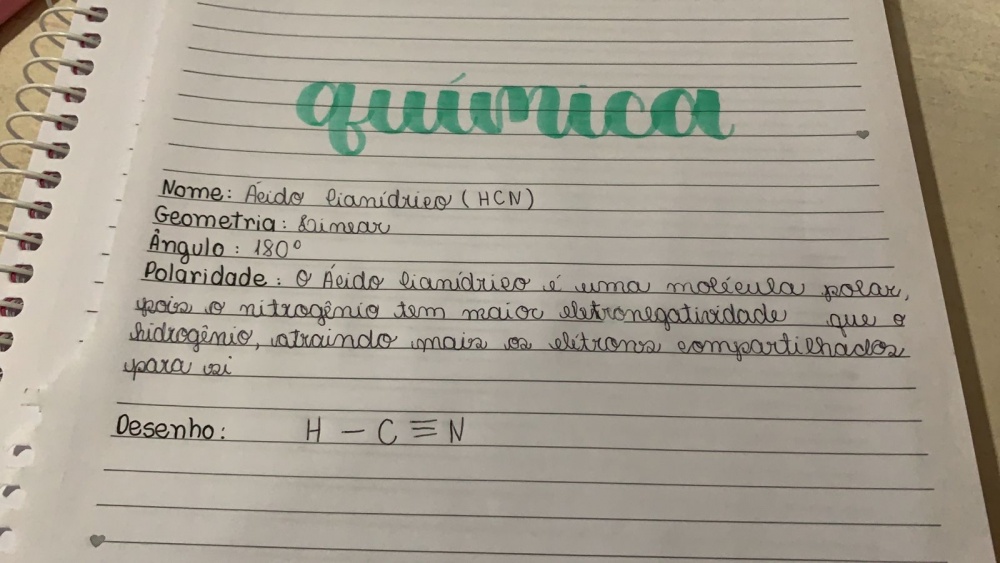 química
Nome: Ácido cianídrico (HCN)
Geometria: Linear
Ângulo: 180°
Polaridade: O Ácido cianídrico é uma molécula polar,
pois o nitrogênio tem maior eletronegatividade que o
hidrogênio, atraindo mais os elétrons compartilhados
para si
Desenho: H — C ≡ N